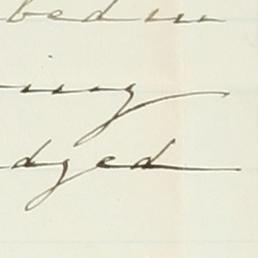 bed in
ing
dged